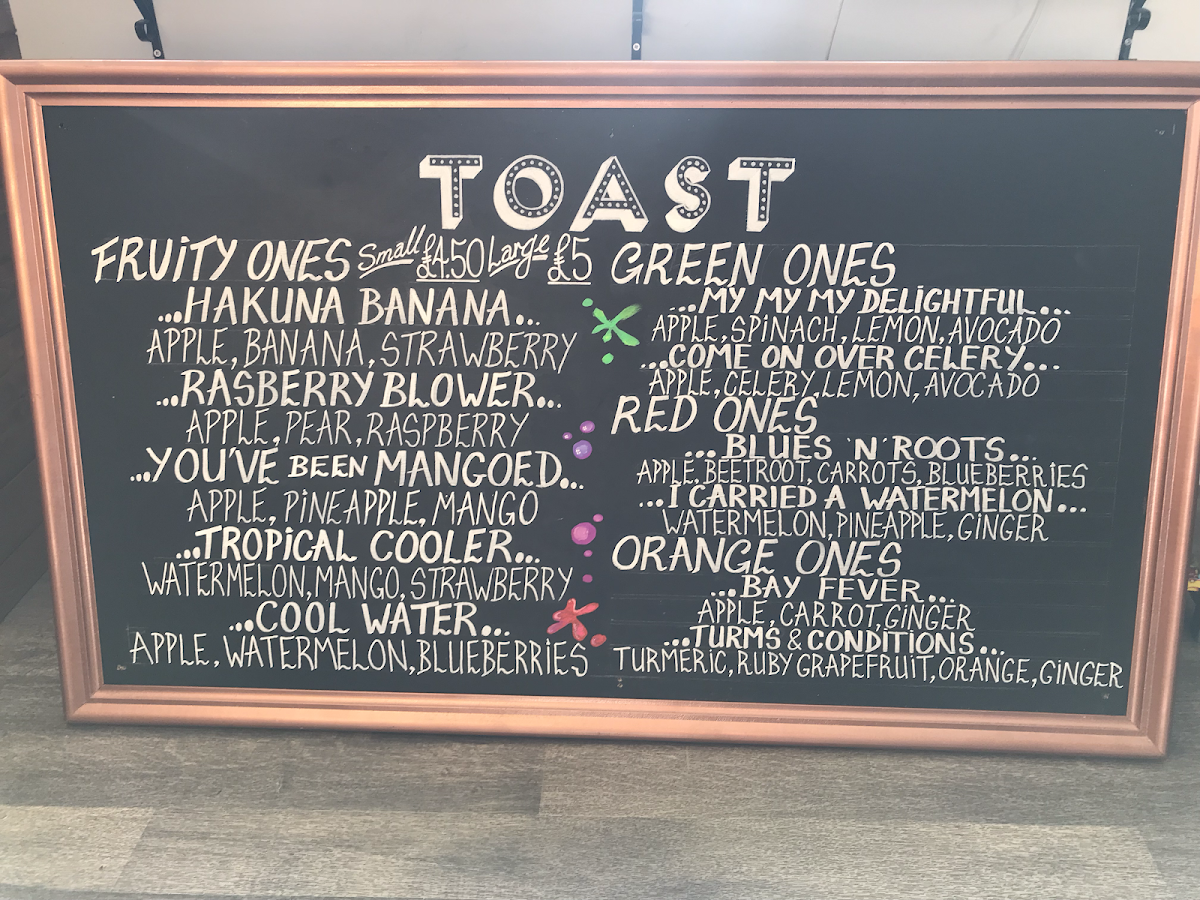 TOAST
FRUITY ONES Small £4.50 Large £5
...HAKUNA BANANA...
APPLE, BANANA, STRAWBERRY
...RASBERRY BLOWER...
APPLE, PEAR, RASPBERRY
...YOU'VE BEEN MANGOED...
APPLE, PINEAPPLE, MANGO
...TROPICAL COOLER...
WATERMELON, MANGO, STRAWBERRY
...COOL WATER...
APPLE, WATERMELON, BLUEBERRIES
GREEN ONES
...MY MY MY DELIGHTFUL...
APPLE, SPINACH, LEMON, AVOCADO
...COME ON OVER CELERY...
APPLE, CELERY, LEMON, AVOCADO
RED ONES
...BLUES 'N' ROOTS...
APPLE, BEETROOT, CARROTS, BLUEBERRIES
...I CARRIED A WATERMELON...
WATERMELON, PINEAPPLE, GINGER
ORANGE ONES
...BAY FEVER...
APPLE, CARROT, GINGER
...TURMS & CONDITIONS...
TURMERIC, RUBY GRAPEFRUIT, ORANGE, GINGER